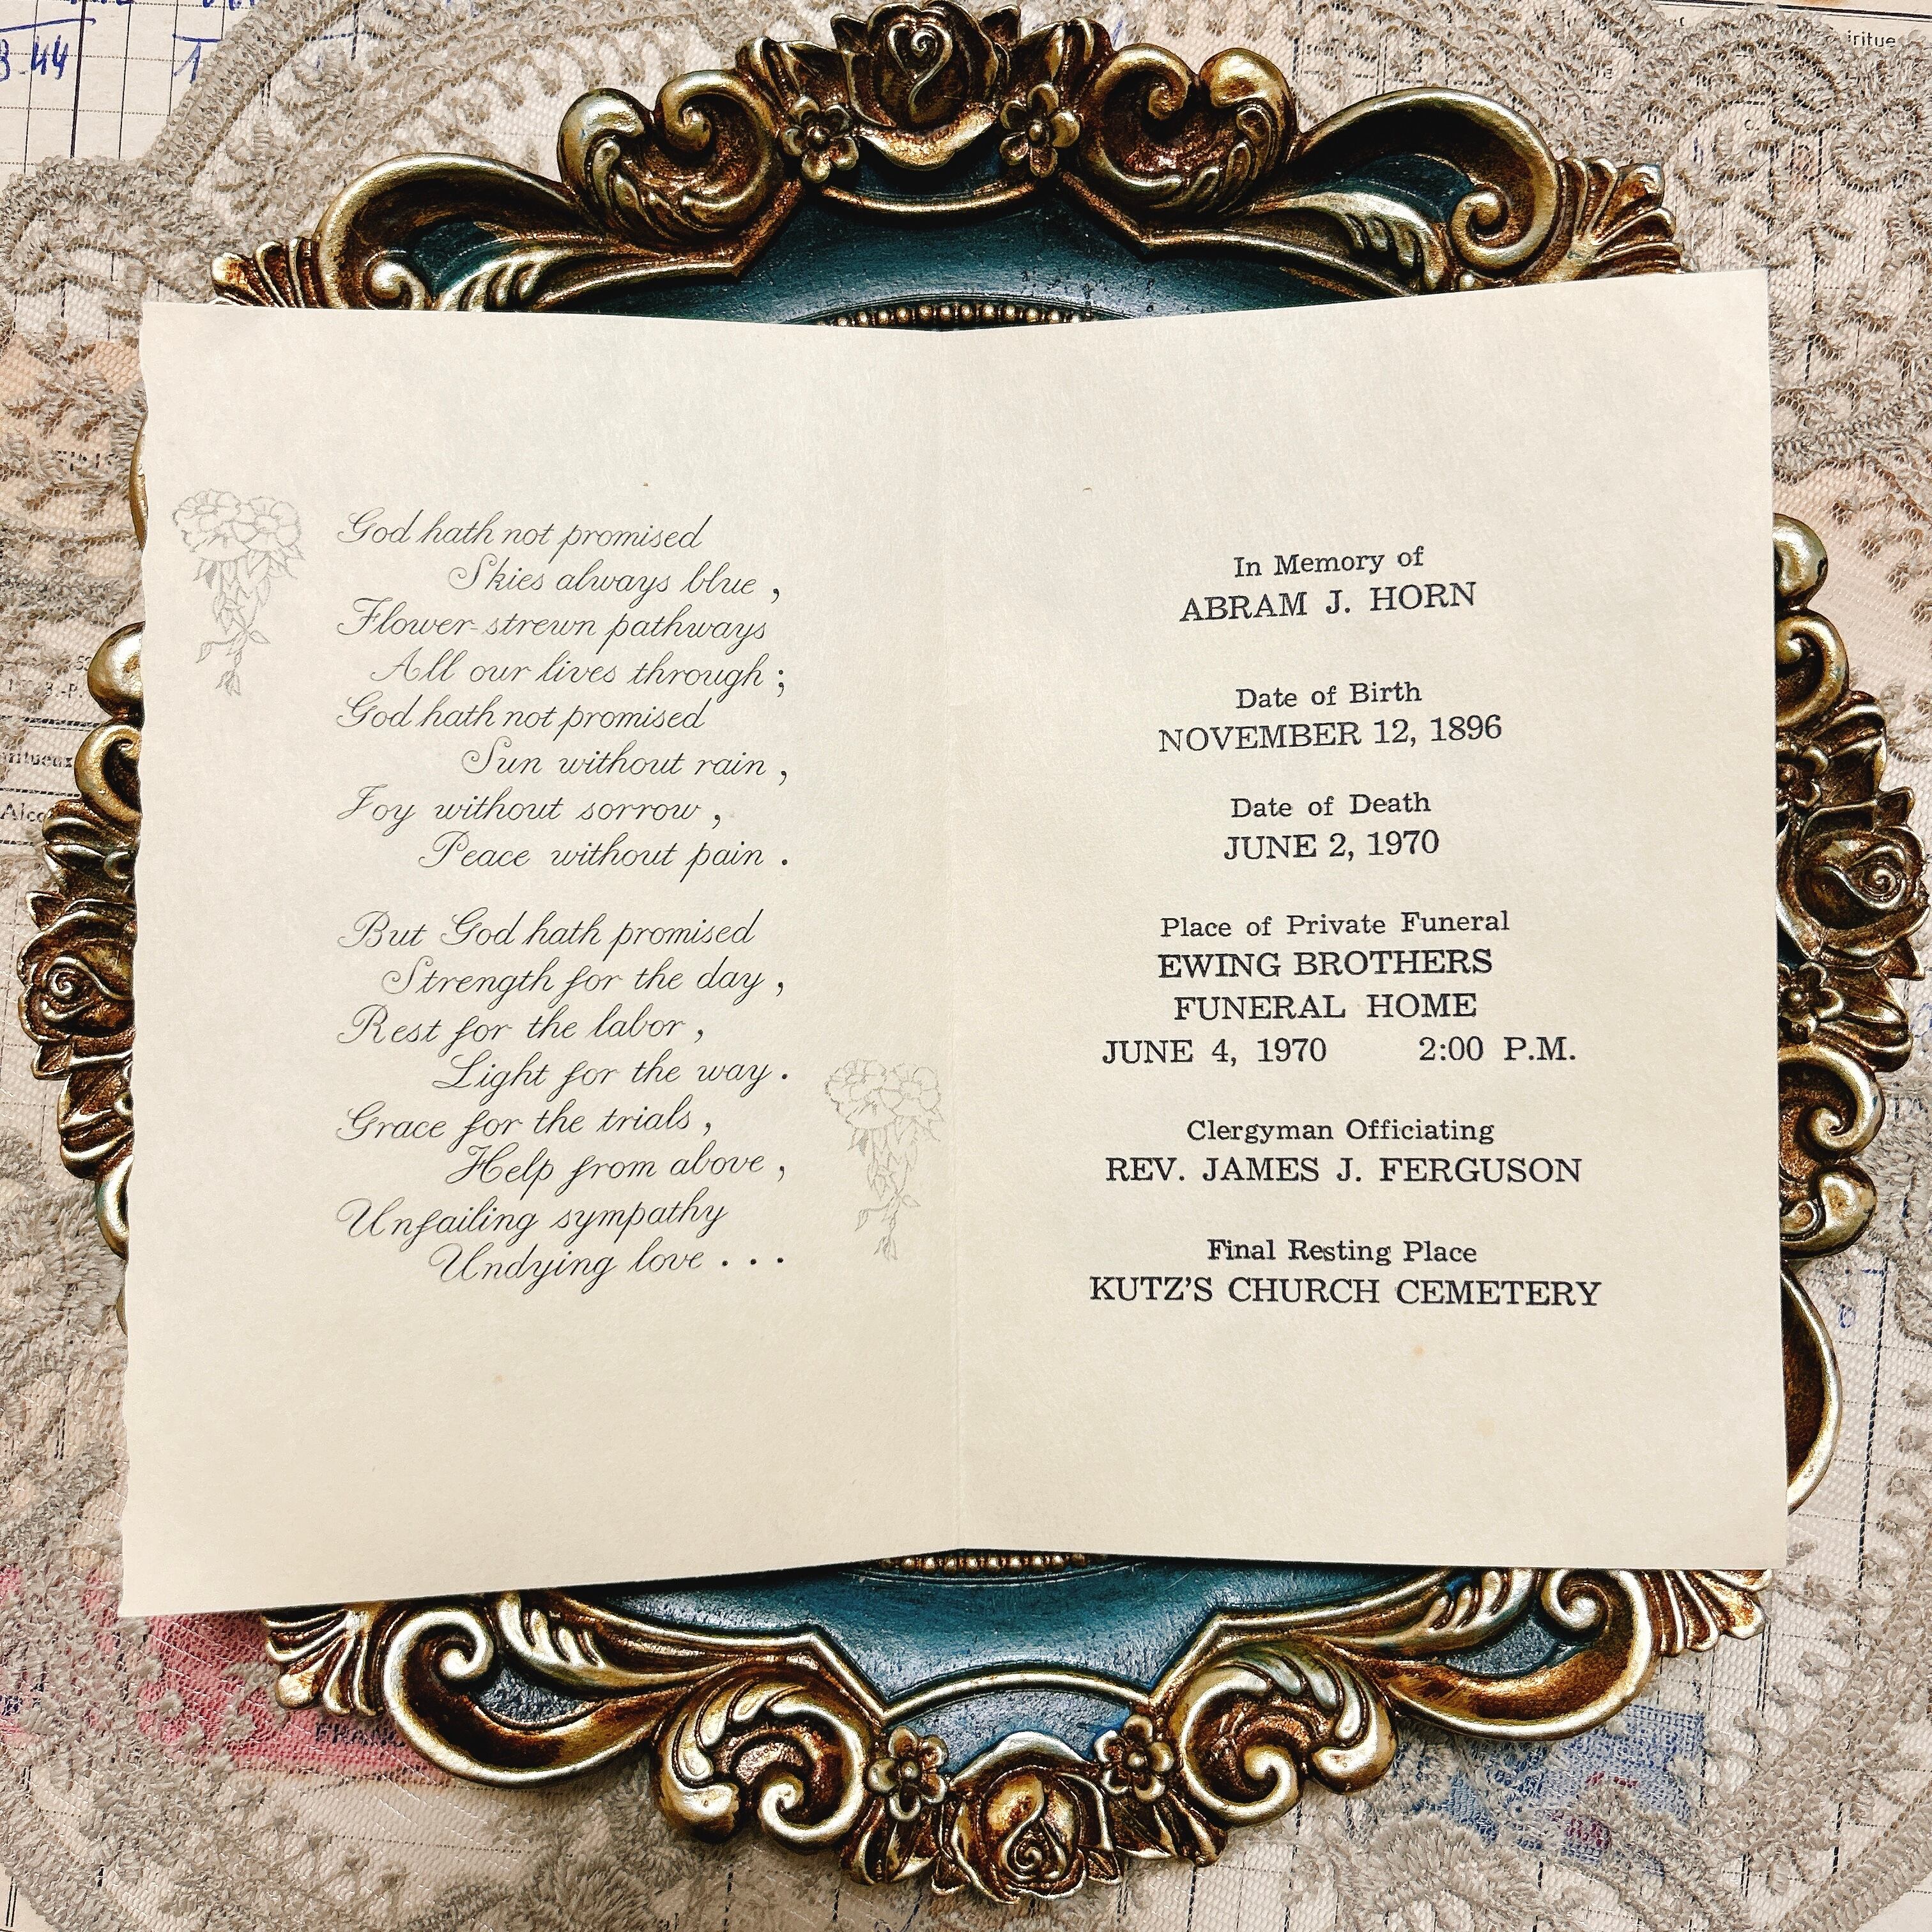 3 44
1
iritue
God hath not promised
Skies always blue,
Flower-strewn pathways
All our lives through;
God hath not promised
Sun without rain,
Joy without sorrow,
Peace without pain.
But God hath promised
Strength for the day,
Rest for the labor,
Light for the way.
Grace for the trials,
Help from above,
Unfailing sympathy
Undying love...
In Memory of
ABRAM J. HORN
Date of Birth
NOVEMBER 12, 1896
Date of Death
JUNE 2, 1970
Place of Private Funeral
EWING BROTHERS
FUNERAL HOME
JUNE 4, 1970 2:00 P.M.
Clergyman Officiating
REV. JAMES J. FERGUSON
Final Resting Place
KUTZ'S CHURCH CEMETERY